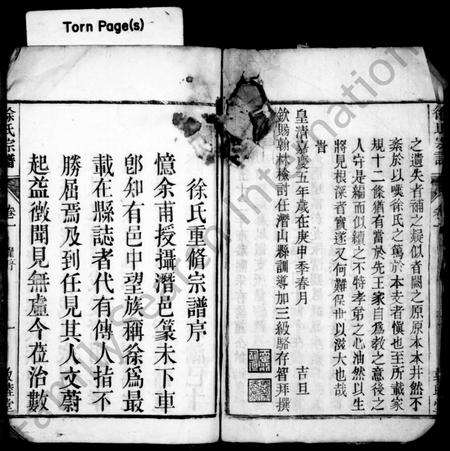 Torn Page(s)
之遺失者補之疑似者闕之原原本本井然不
紊於以嘆徐氏之篤於本支者慎也至所載家
規十二條猶有當於先王家自為教之意後之
人守是編而似續之不特孝弟之心油然以生
將見根深者實遂又何難保世以滋大也哉
旹
皇清嘉慶五年歲在庚申季春月 吉旦
欽賜翰林檢討任潛山縣訓導加三級駱存智拜撰
徐氏重修宗譜序
憶余甫授攝潛邑篆未下車
卽知有邑中望族稱徐為最
載在縣誌者代有傳人指不
勝屈焉及到任見其人文蔚
起益徵聞見無虛今蒞治數
徐氏宗譜
卷一
敦睦堂
FamilySearch International